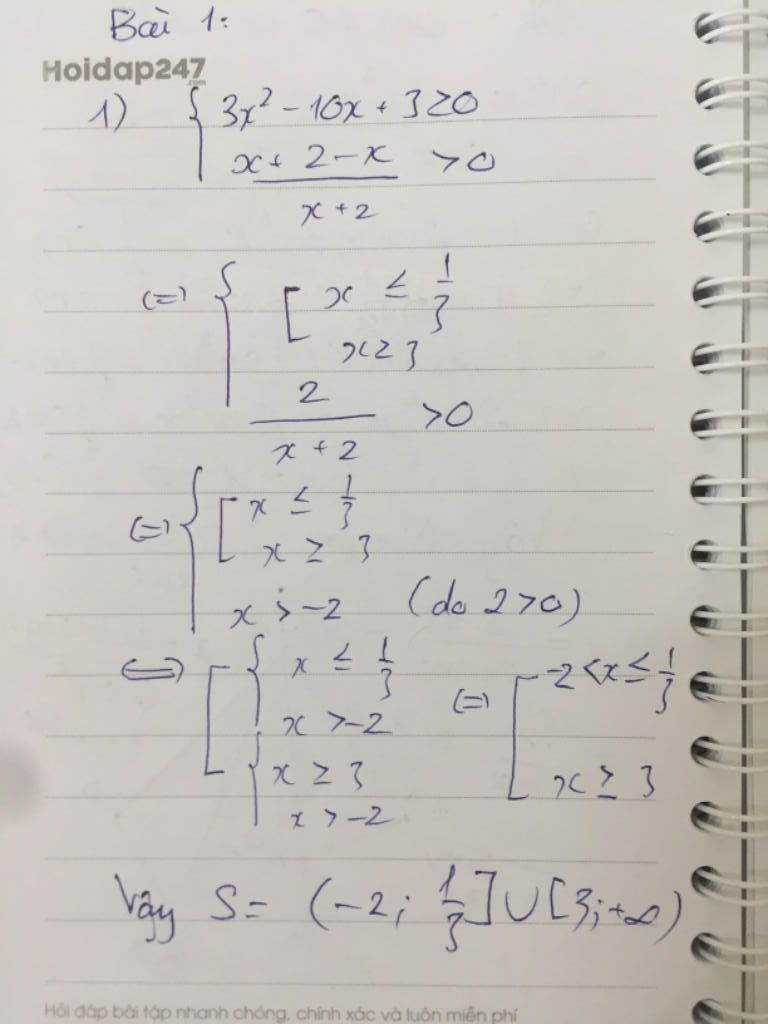 Bài 1:
Hoidap247
.com
1) { 3x² - 10x + 3 ≥ 0
x + 2 - x > 0
x + 2
(=) { [ x ≤ 1/3
x ≥ 3
2 > 0
x + 2
(=) { [ x ≤ 1/3
x ≥ 3
x > -2 (do 2 > 0)
<=> [ { x ≤ 1/3
x > -2
{ x ≥ 3
x > -2
(=) [ -2 < x ≤ 1/3
x ≥ 3
Vậy S = (-2; 1/3] ∪ [3; +∞)
Hỏi đáp bài tập nhanh chóng, chính xác và luôn miễn phí